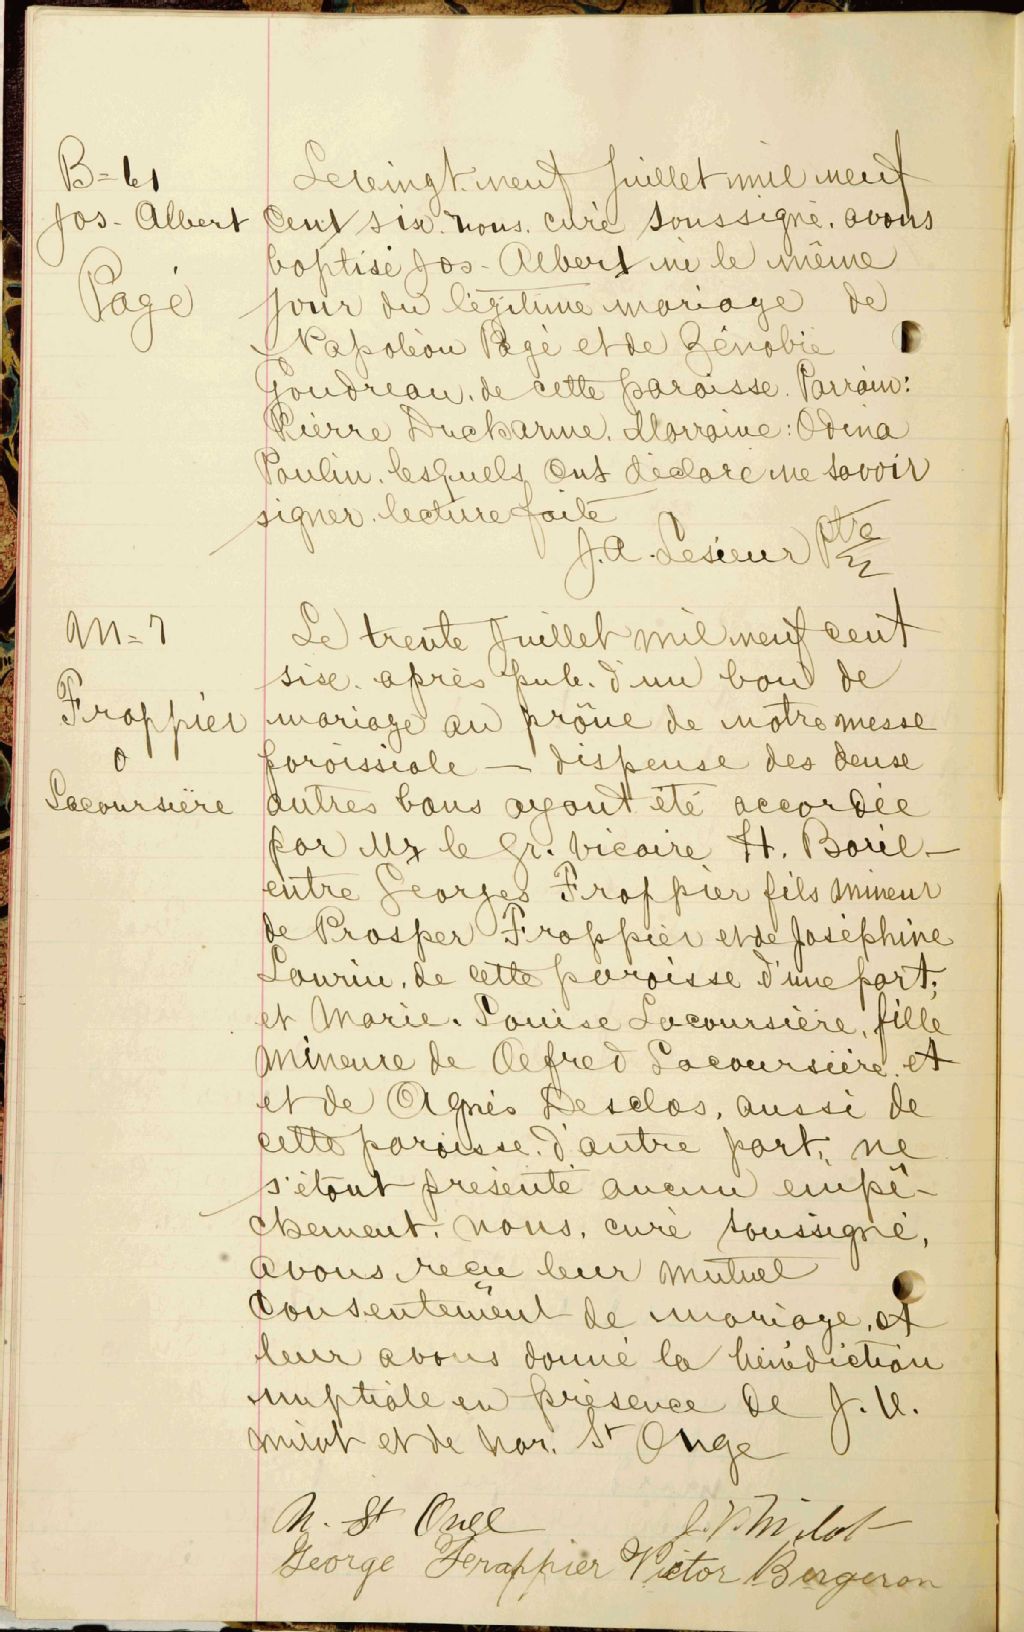 B=61
Jos- Albert
Pagé
Le vingt-neuf Juillet mil neuf
cent six. nous, curé soussigné, avons
baptisé Jos- Albert né le même
jour du légitime mariage de
Napoléon Pagé et de Zénobie
Goudreau, de cette paroisse. Parrain:
Pierre Ducharme. Marraine: Odina
Poulin, lesquels ont déclaré ne savoir
signer. lecture faite
J. A. Lesieur Ptre
M=7
Frappier
&
Lacoursière
Le trente Juillet mil neuf cent
six. après pub. d'un ban de
mariage au prône de notre messe
paroissiale — dispense des deux
autres bans ayant été accordée
par Mr le Gr. vicaire H. Baril —
entre Georges Frappier fils mineur
de Prosper Frappier et de Joséphine
Laurin, de cette paroisse d'une part;
et Marie-Louise Lacoursière, fille
mineure de Alfred Lacoursière et
et de Agnès Desclos, aussi de
cette paroisse, d'autre part; ne
s'étant présenté aucun empê-
chement, nous, curé soussigné,
avons reçu leur mutuel
consentement de mariage, et
leur avons donné la bénédiction
nuptiale en présence de J. V.
Milot et de Nar. St Onge
N. St Onge J. V. Milot
George Ferappier Victor Bergeron